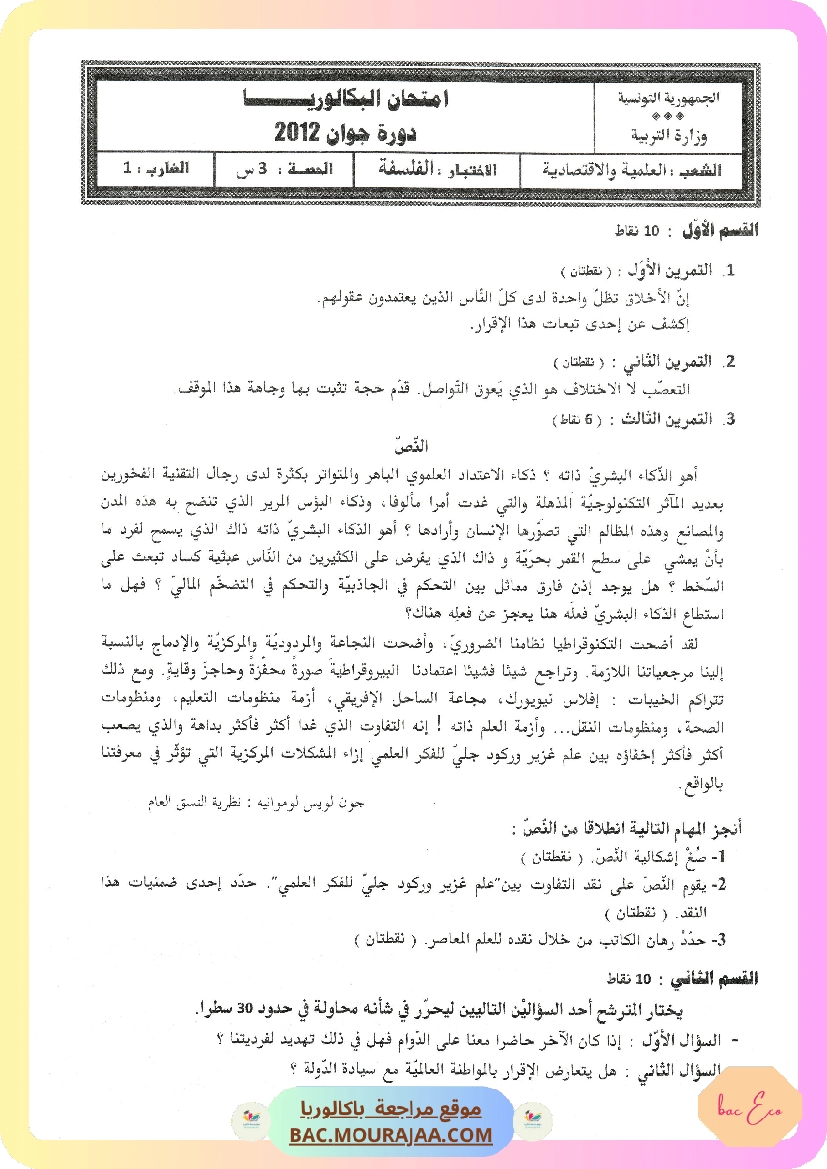 الجمهورية التونسية
وزارة التربية
امتحان البكالوريا
دورة جوان 2012
الشعب : العلمية والاقتصادية
الاختبار : الفلسفة
الحصة : 3 س
الضارب : 1
القسم الأوّل : 10 نقاط
1. التمرين الأوّل : ( نقطتان )
إنّ الأخلاق تظلّ واحدة لدى كلّ النّاس الذين يعتمدون عقولهم.
إكشف عن إحدى تبعات هذا الإقرار.
2. التمرين الثاني : ( نقطتان )
التعصّب لا الاختلاف هو الذي يَعوق التّواصل. قدّم حجة تثبت بها وجاهة هذا الموقف.
3. التمرين الثالث : ( 6 نقاط)
النّصّ
أهو الذّكاء البشريّ ذاته ؟ ذكاء الاعتداد العلموي الباهر والمتواتر بكثرة لدى رجال التقنية الفخورين
بعديد المآثر التكنولوجيّة المذهلة والتي غدت أمرا مألوفا، وذكاء البؤس المرير الذي تنضح به هذه المدن
والمصانع وهذه المظالم التي تصوّرها الإنسان وأرادها ؟ أهو الذكاء البشريّ ذاته ذاك الذي يسمح لفرد ما
بأنْ يمشي على سطح القمر بحرّيّة و ذاك الذي يفرض على الكثيرين من النّاس عبثية كساد تبعث على
السّخط ؟ هل يوجد إذن فارق مماثل بين التحكم في الجاذبيّة والتحكم في التضخّم الماليّ ؟ فهل ما
استطاع الذكاء البشريّ فعلَه هنا يعجز عن فعلِه هناك؟
لقد أضحت التكنوقراطيا نظامنا الضروريّ، وأضحت النّجاعة والمردوديّة والمركزيّة والإدماج بالنسبة
إلينا مرجعياتنا اللازمة. وتراجع شيئا فشيئا اعتمادنا البيروقراطيةَ صورةً محفّزةً وحاجزَ وقايةٍ. ومع ذلك
تتراكم الخيبات : إفلاس نيويورك، مجاعة الساحل الإفريقي، أزمة منظومات التعليم، ومنظومات
الصحة، ومنظومات النقل... وأزمة العلم ذاته ! إنه التفاوت الذي غدا أكثر فأكثر بداهة والذي يصعب
أكثر فأكثر إخفاؤه بين علم غزير وركود جليّ للفكر العلمي إزاء المشكلات المركزية التي تؤثّر في معرفتنا
بالواقع.
جون لويس لوموانيه : نظرية النسق العام
أنجز المهام التالية انطلاقا من النّصّ :
1- صُغْ إشكالية النّصّ. ( نقطتان )
2- يقوم النّصّ على نقد التفاوت بين"علم غزير وركود جليّ للفكر العلمي". حدّد إحدى ضمنيات هذا
النقد. ( نقطتان )
3- حدّدْ رهان الكاتب من خلال نقده للعلم المعاصر. ( نقطتان )
القسم الثاني : 10 نقاط
يختار المترشح أحد السؤاليْن التاليين ليحرّر في شأنه محاولة في حدود 30 سطرا.
- السؤال الأوّل : إذا كان الآخر حاضرا معنا على الدّوام فهل في ذلك تهديد لفرديتنا ؟
السؤال الثاني : هل يتعارض الإقرار بالمواطنة العالميّة مع سيادة الدّولة ؟
موقع مراجعة باكالوريا
BAC.MOURAJAA.COM
bac Eco